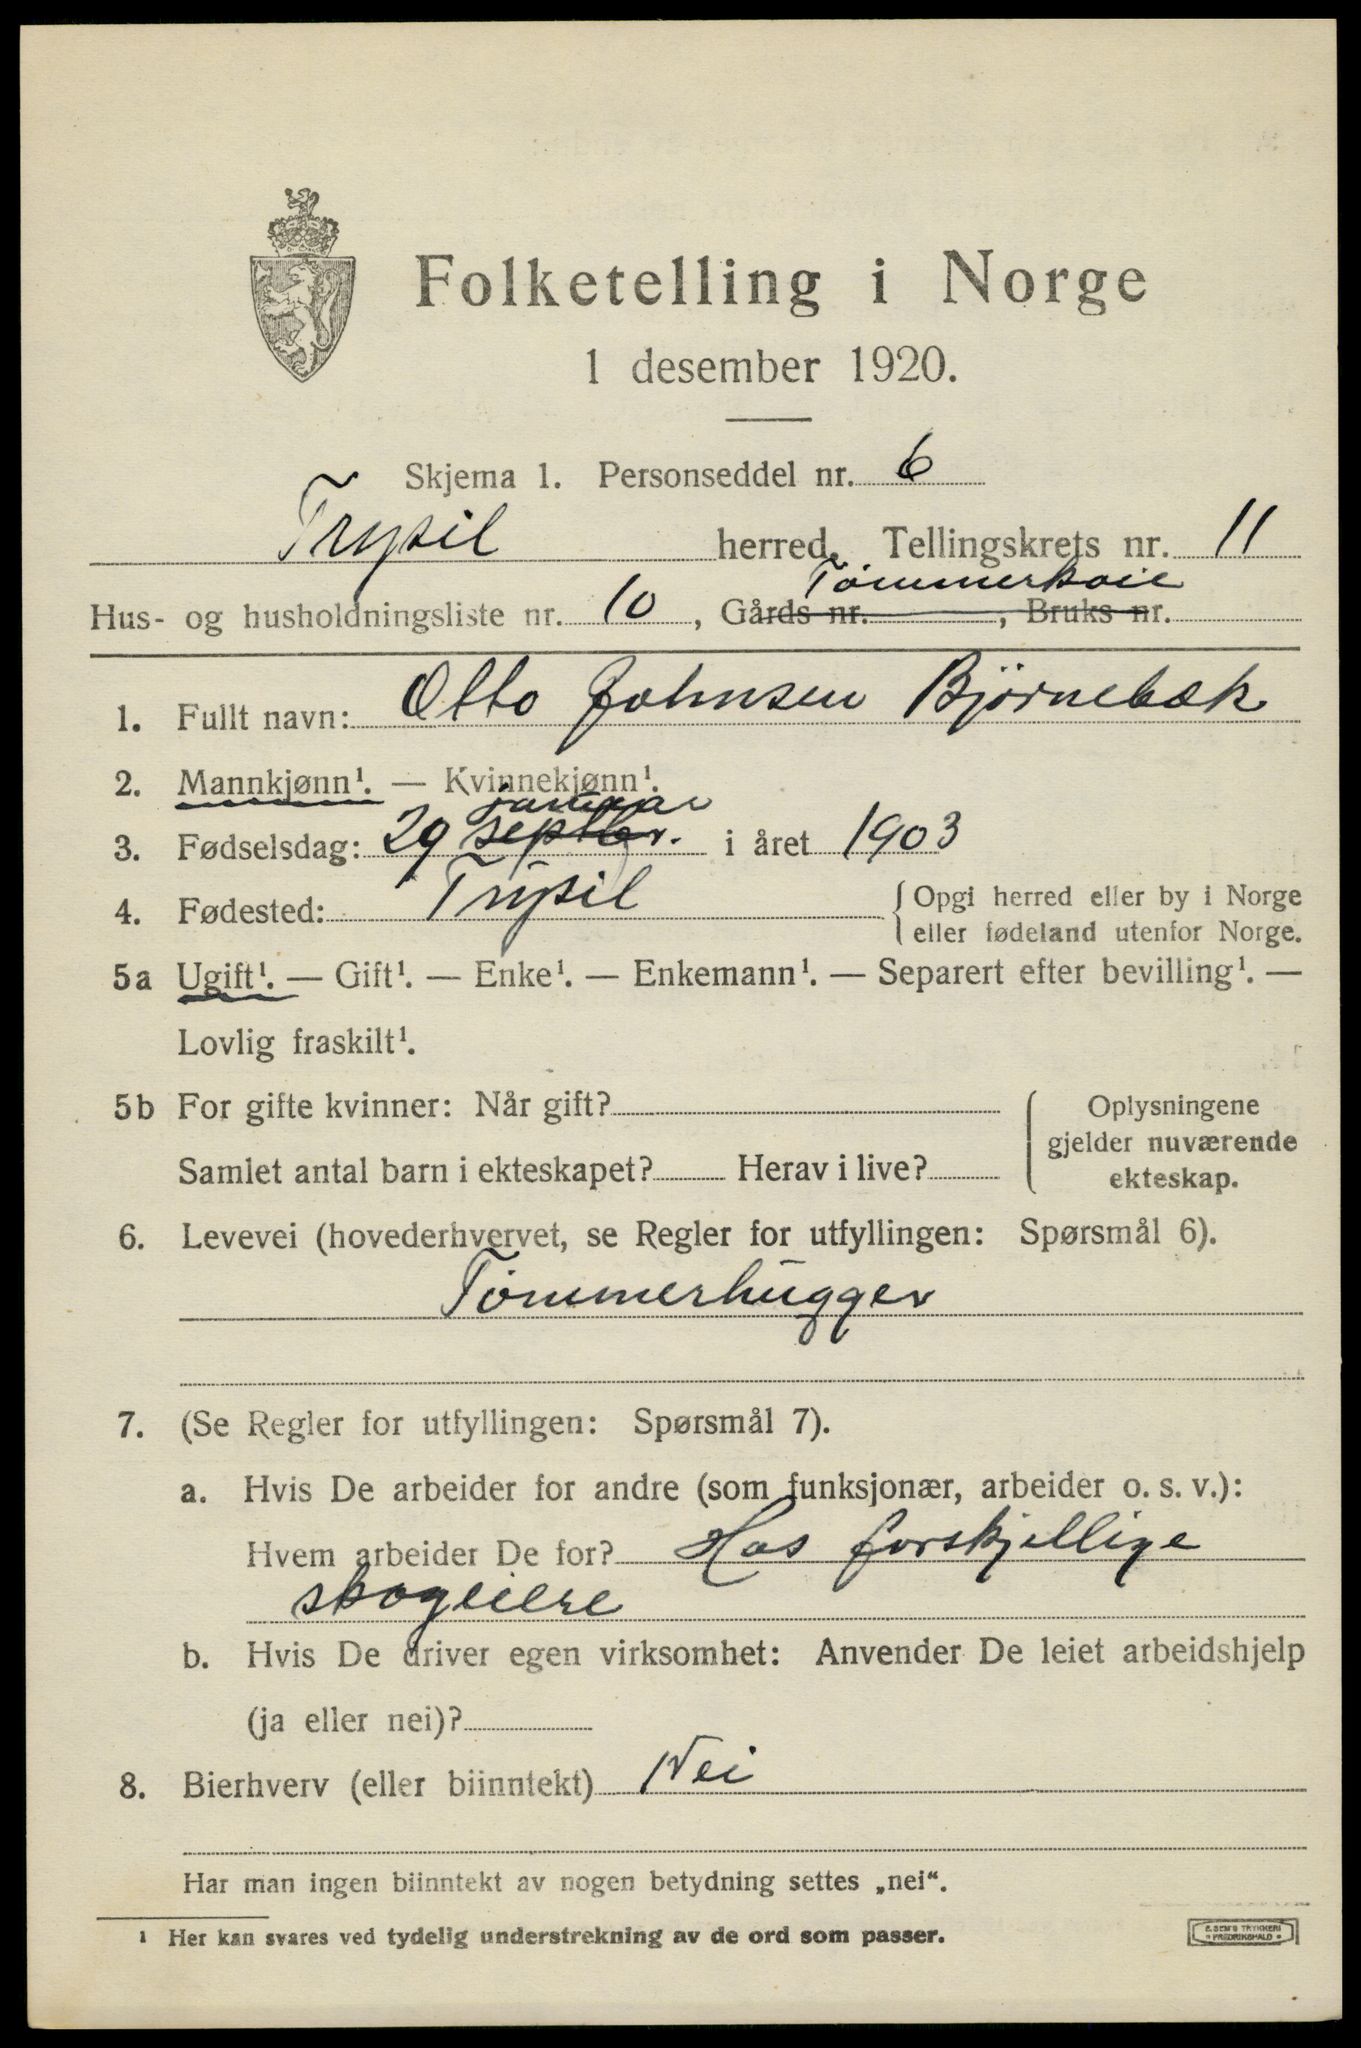 Folketelling i Norge
1 desember 1920.
Skjema 1. Personseddel nr. 6
Trysil herred. Tellingskrets nr. 11
Tømmerkoie
Hus- og husholdningsliste nr. 10, Gårds nr. , Bruks nr.
1. Fullt navn: Otto Johnsen Bjørnebæk
2. Mannkjønn¹. — Kvinnekjønn¹.
januar
3. Fødselsdag: 29 septbr. i året 1903
4. Fødested: Trysil { Opgi herred eller by i Norge
eller fødeland utenfor Norge.
5a Ugift¹. — Gift¹. — Enke¹. — Enkemann¹. — Separert efter bevilling¹. —
Lovlig fraskilt¹.
5b For gifte kvinner: Når gift? { Oplysningene
gjelder nuværende
Samlet antal barn i ekteskapet? Herav i live? ekteskap.
6. Levevei (hovederhvervet, se Regler for utfyllingen: Spørsmål 6).
Tømmerhugger
7. (Se Regler for utfyllingen: Spørsmål 7).
a. Hvis De arbeider for andre (som funksjonær, arbeider o. s. v.):
Hvem arbeider De for? Hos forskjellige
skogeiere
b. Hvis De driver egen virksomhet: Anvender De leiet arbeidshjelp
(ja eller nei)?
8. Bierhverv (eller biinntekt) Nei
Har man ingen biinntekt av nogen betydning settes „nei“.
¹ Her kan svares ved tydelig understrekning av de ord som passer.
E. SEM'S TRYKKERI
* FREDRIKSHALD *